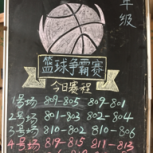 年级
篮球争霸赛
今日赛程
1号场 809-805 809-801
2号场 801-803 802-804
3号场 810-802 810-806
4号场 819-815 811-813